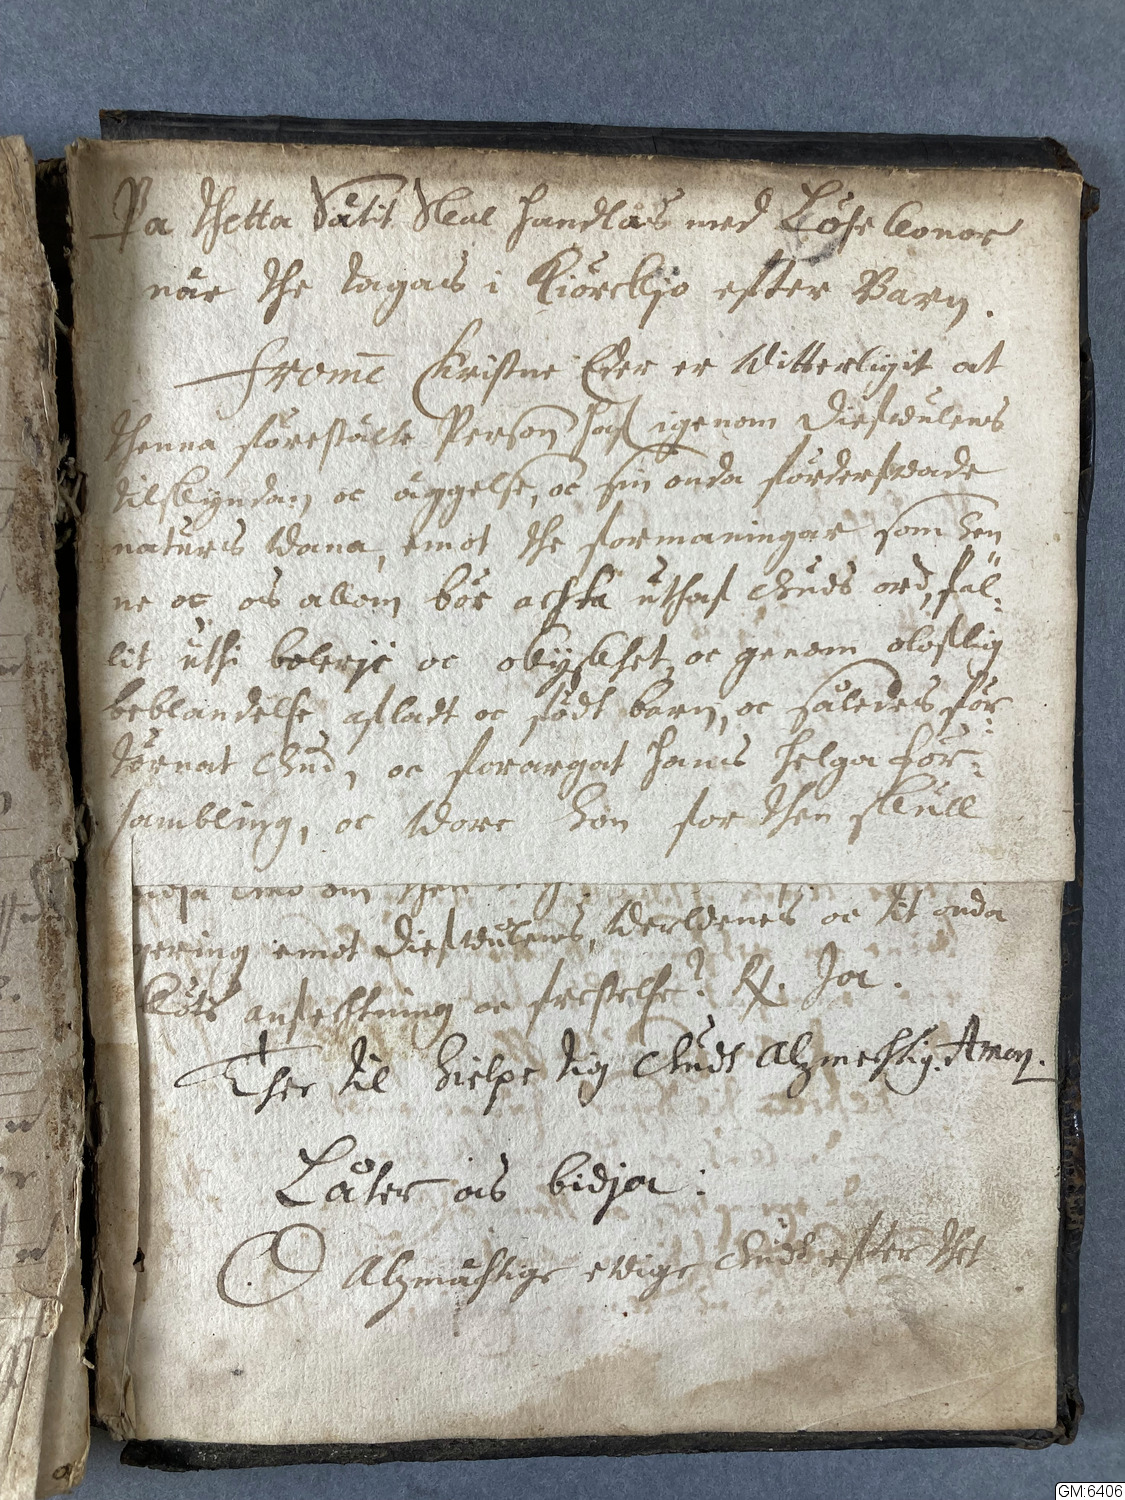 På thetta Sätit Skal handlas med Löse konor
när the tagas i Kiörckjo efter Barn.
Frome Christne Eder er Witterligit at
thenna förestälte Person haf igenom Diefwulens
tilskyndan oc äggelse, oc sin onda förderfwade
naturs Wana, emot the formaningar som hen
ne oc os allom bör achta uthaf Guds ord, fal-
lit uthi bolerje oc okyskhet, oc genom oloflig
beblandelse afladt oc födt barn, oc således för-
törnat Gud, oc forargat hans helga För-
sambling, oc Ware hon for then skull
om then
gering emot Diefwulens, Werldenes oc tit onda
Köts anfechtning oc frestelse? R. Ja.
Ther til hielpe tig Gudh Alzmechtig. Amen.
Låter os bidja:
O Alzmächtige ewige Gudh efter thet
GM:6406